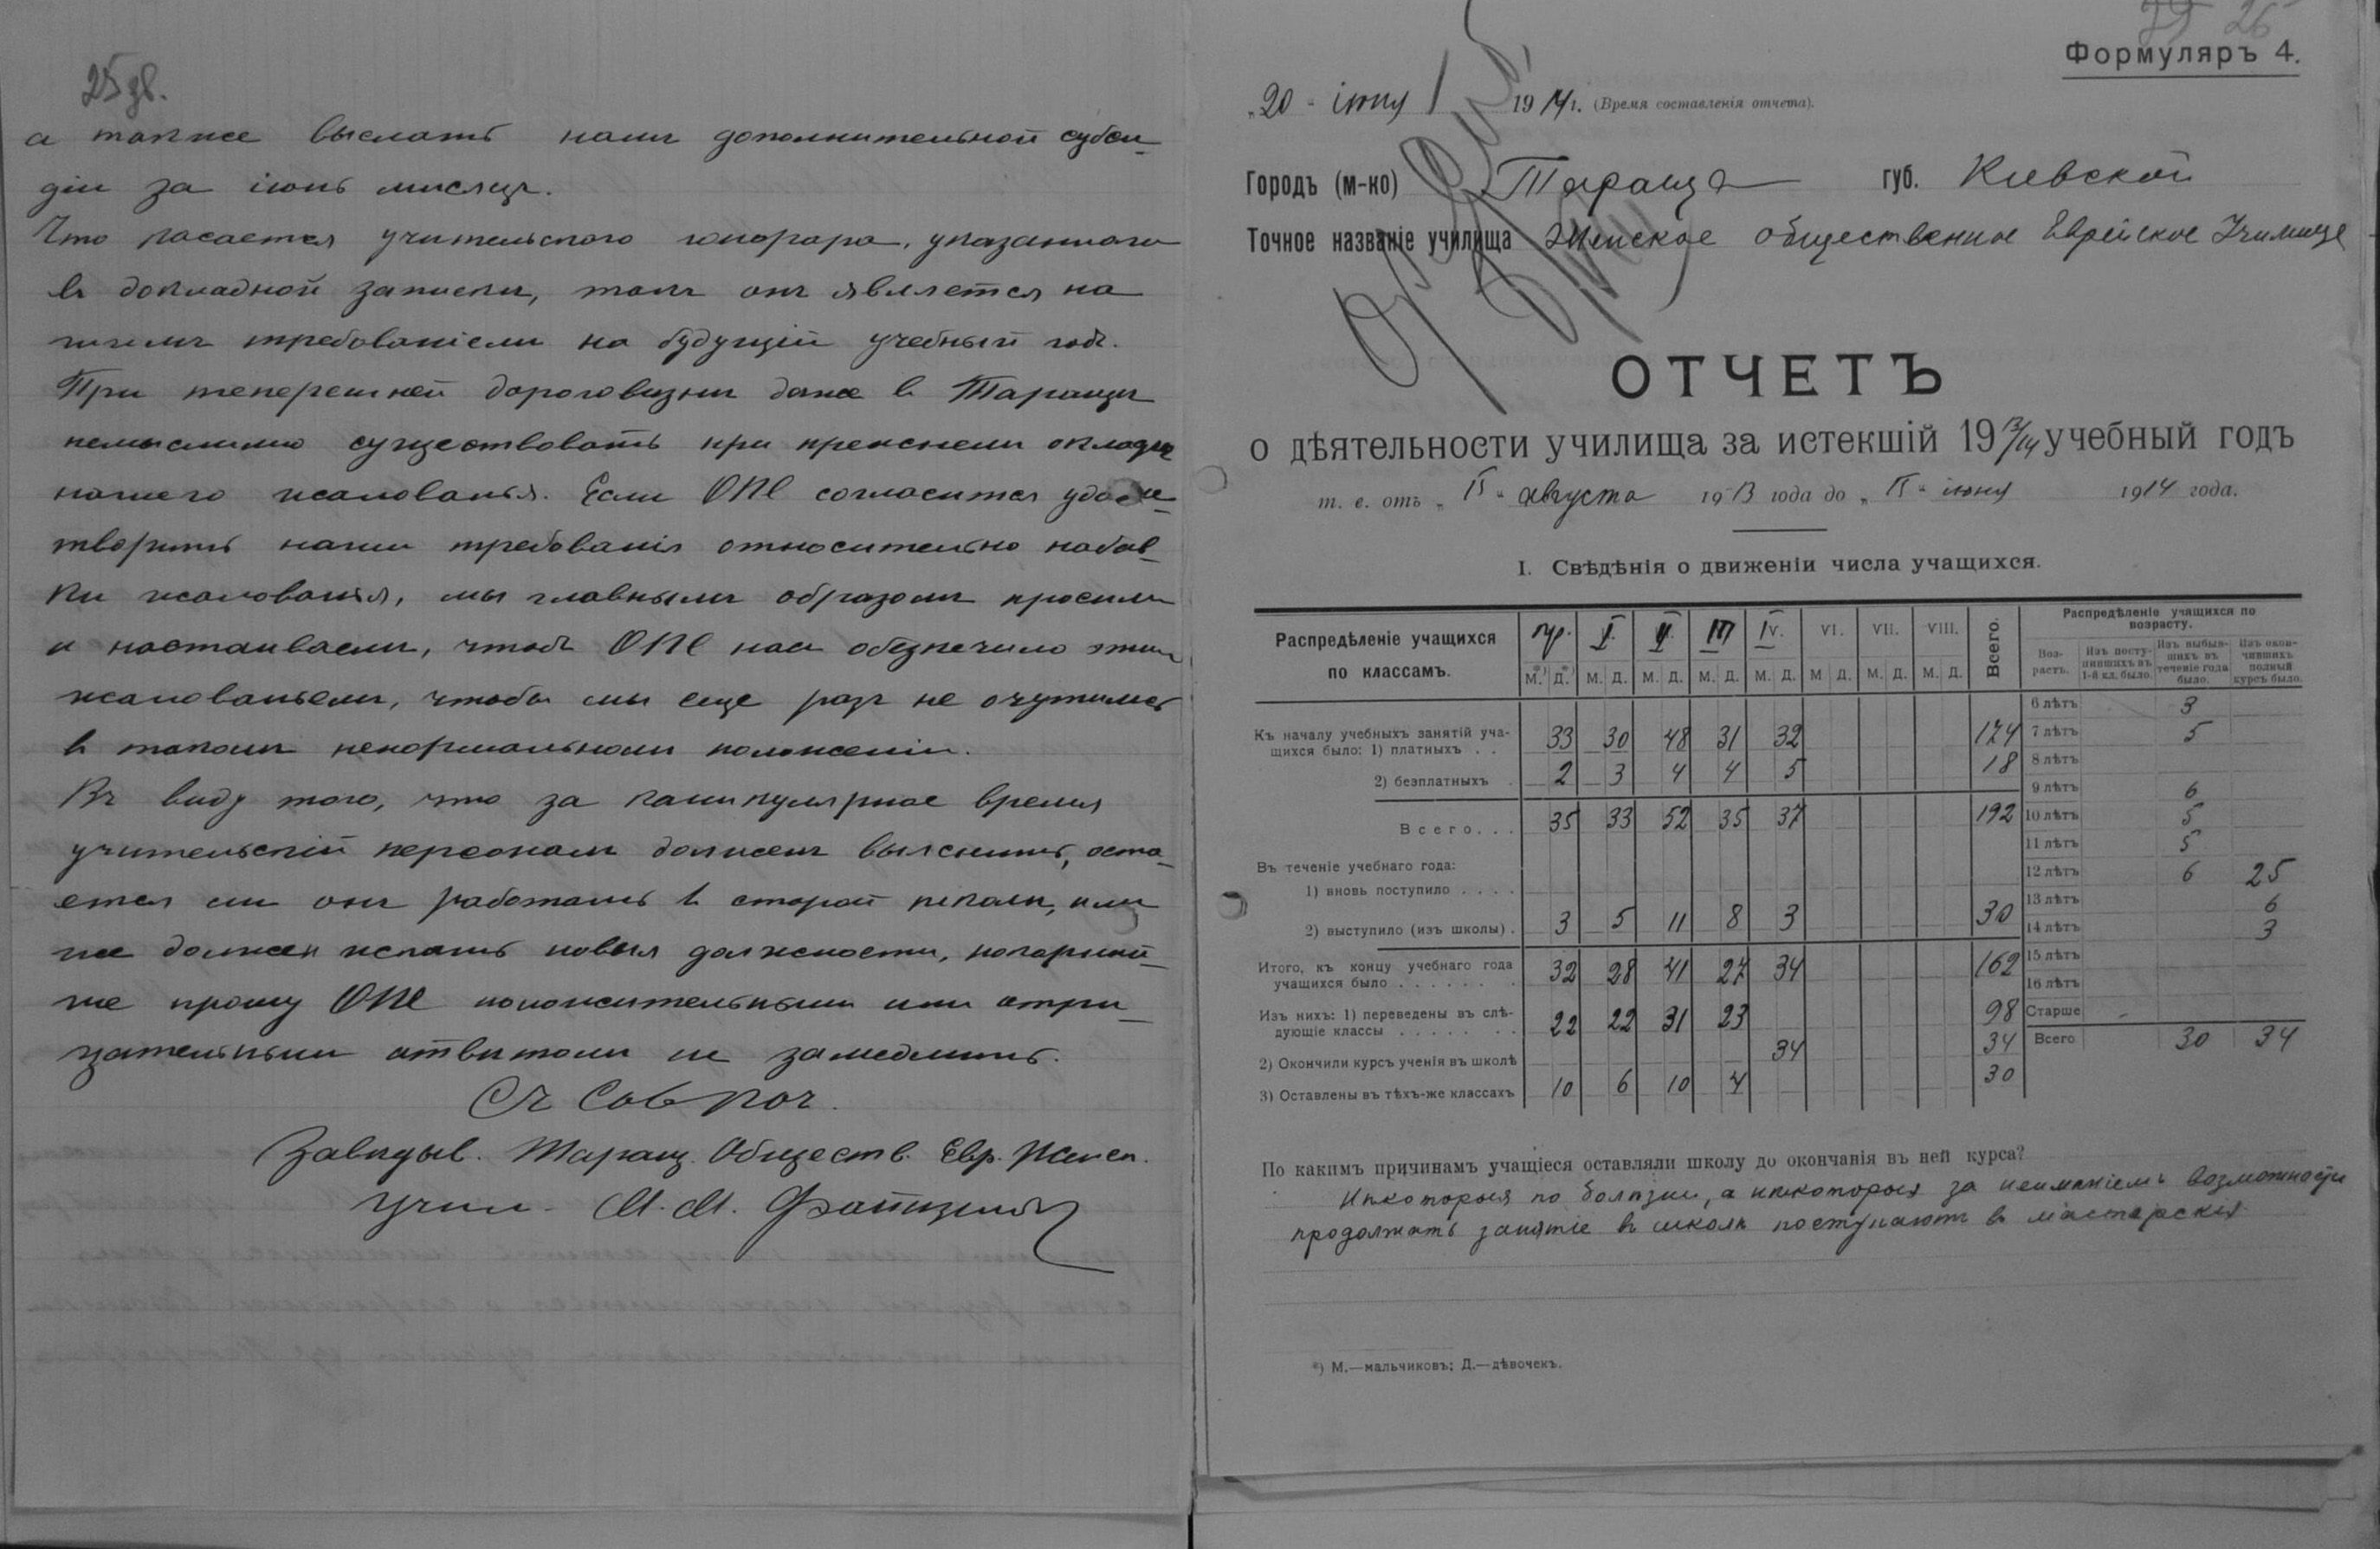 25 зв.
а также выслать намъ дополнительной субси-
діи за іюнь мѣсяцъ.
Что касается учительскаго гонорара, указаннаго
въ докладной запискѣ, такъ онъ является на-
шимъ требованіемъ на будущій учебный годъ.
При теперешней дороговизнѣ даже въ Таращѣ
немыслимо существовать при прежнемъ окладѣ
нашего жалованья. Если ОПЕ согласится удовле-
творить наши требованія относительно набав-
ки жалованія, мы главнымъ образомъ просимъ
и настаиваемъ, чтобъ ОПЕ насъ обезпечило этимъ
жалованьемъ, чтобы мы еще разъ не очутились
въ такомъ ненормальномъ положеніи.
Въ виду того, что за каникулярное время
учительскій персоналъ долженъ выяснить, оста-
ется ли онъ работать въ старой школѣ, или
же долженъ искать новыя должности,
же прошу ОПЕ положительнымъ или отри-
цательнымъ отвѣтомъ не замедлить.
Съ Сов. поч.
Завѣдыв. Таращ. Обществ. Евр. Женск.
Учил. М. М.
26
Формуляръ 4.
„20" іюня 1914 г. (Время составленія отчета).
Городъ (м-ко) Тараща губ. Кіевской
Точное названіе училища Женское общественное Еврейское Училище
ОТЧЕТЪ
о дѣятельности училища за истекшій 1913/14 учебный годъ
т. е. отъ „15" августа 1913 года до „15" іюня 1914 года.
I. Свѣдѣнія о движеніи числа учащихся.
Распредѣленіе учащихся по классамъ. пр. I. II. III IV. VI. VII. VIII. Всего.
М.*) Д.*) М. Д. М. Д. М. Д. М. Д. М Д. М. Д. М. Д.
Къ началу учебныхъ занятій уча-
щихся было: 1) платныхъ . . 33 30 48 31 32 174
2) безплатныхъ 2 3 4 4 5 18
Всего. . . 35 33 52 35 37 192
Въ теченіе учебнаго года:
1) вновь поступило . . . .
2) выступило (изъ школы) . 3 5 11 8 3 30
Итого, къ концу учебнаго года
учащихся было . . . . . . . 32 28 41 27 34 162
Изъ нихъ: 1) переведены въ слѣ-
дующіе классы . . . . . . . 22 22 31 23 98
2) Окончили курсъ ученія въ школѣ 34 34
3) Оставлены въ тѣхъ-же классахъ 10 6 10 4 30
Распредѣленіе учащихся по
возрасту.
Воз-
растъ.
Изъ посту-
пившихъ въ
1-й кл. было.
Изъ выбыв-
шихъ въ
теченіе года
было.
Изъ окон-
чившихъ
полный
курсъ было.
6 лѣтъ 3
7 лѣтъ 5
8 лѣтъ
9 лѣтъ 6
10 лѣтъ 5
11 лѣтъ 5
12 лѣтъ 6 25
13 лѣтъ 6
14 лѣтъ 3
15 лѣтъ
16 лѣтъ
Старше
Всего 30 34
По какимъ причинамъ учащіеся оставляли школу до окончанія въ ней курса?
Нѣкоторыя по болѣзни, а нѣкоторыя за неимѣніемъ возможности
продолжать занятіе въ школѣ поступаютъ въ мастерскія.
*) М.—мальчиковъ; Д.—дѣвочекъ.